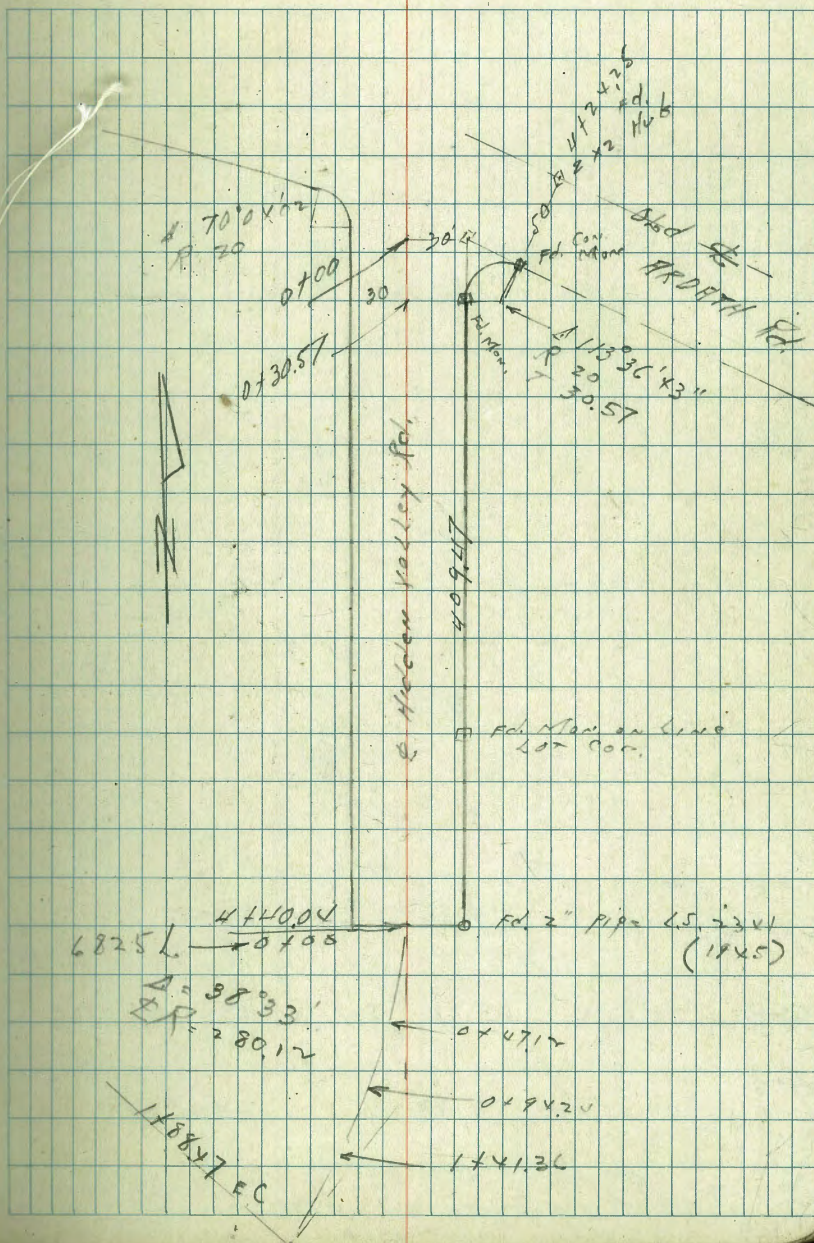 4+2+.25
Fd.
2x2 Hub
50
Old ℄
ARDATH Rd.
Δ 70°04'02
R 20
0+00
30'
Fd. Con.
Mon
30
0+30.57
Fd. Mon.
Δ 113°36'43"
R 20
T 30.57
℄ Hidden Valley Rd.
409.47
N
Fd. Mon on Line
Lot Cor.
4+40.04
6825L → 0+00
Fd. 2" Pipe LS. 2341
(1945)
Δ = 38°33'
℄ R = 280.12
0+47.12
0+94.24
1+41.36
1+88.47 EC